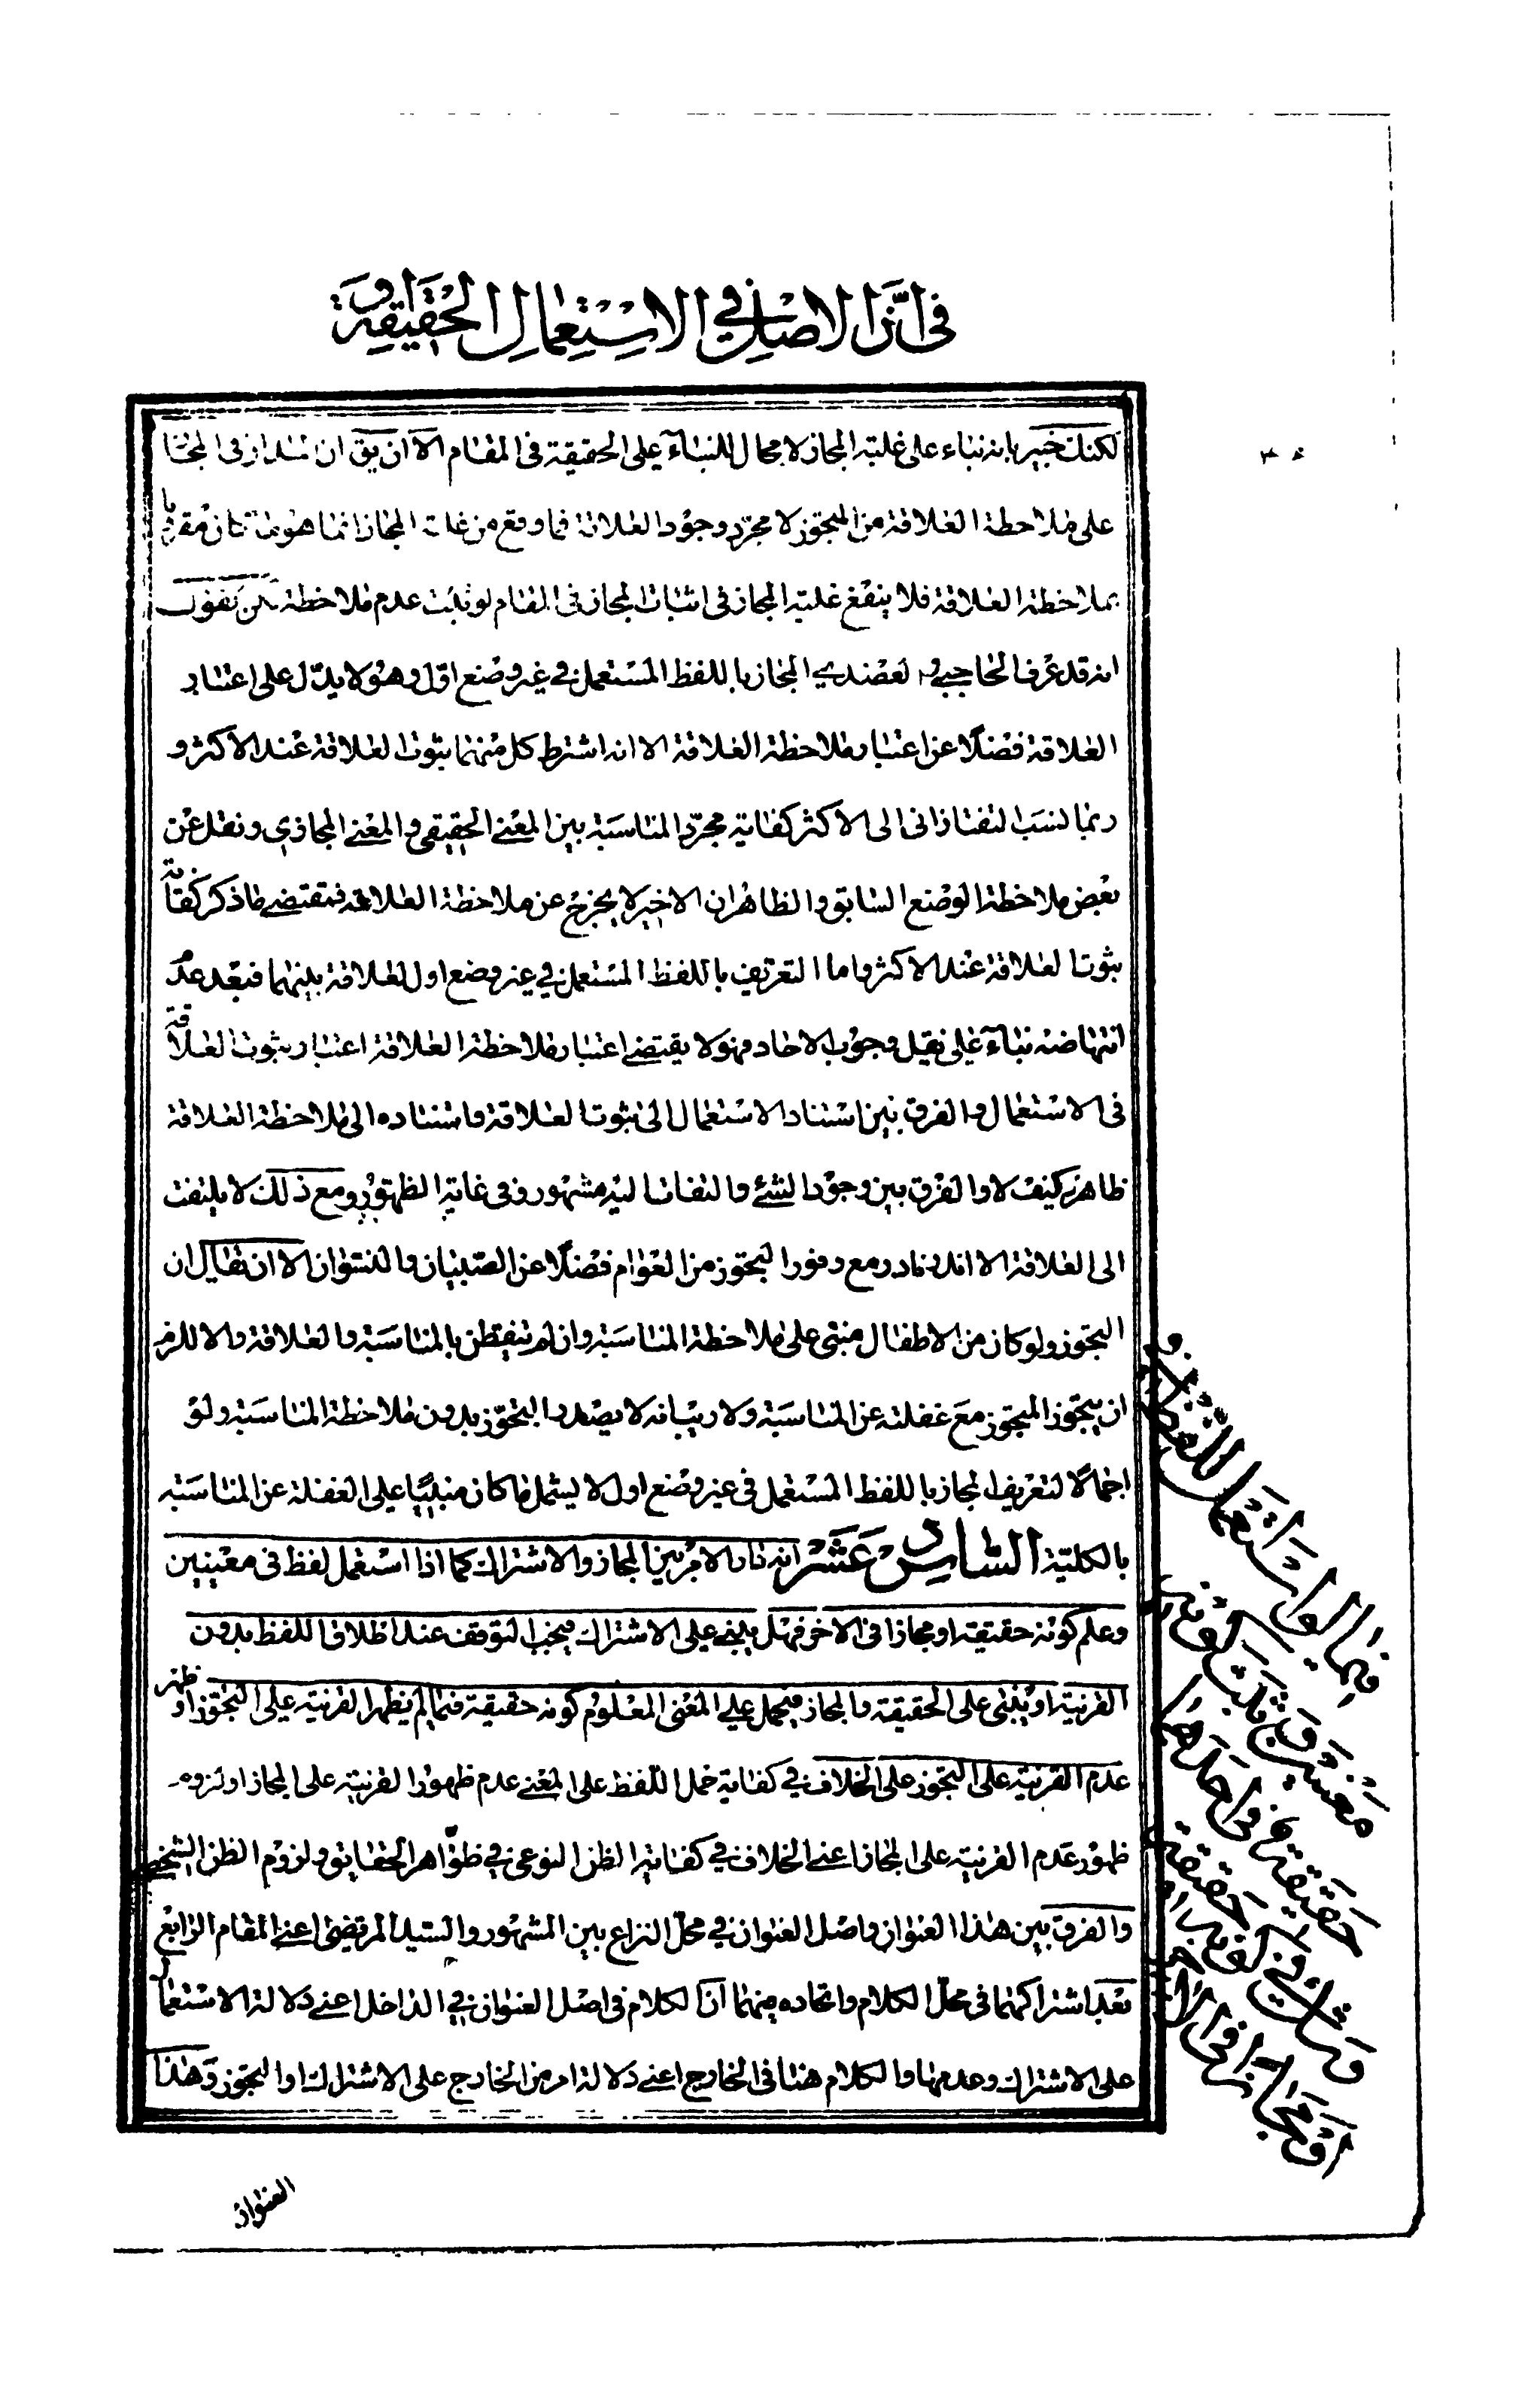 في ان الاصل في الاستعمال الحقيقة او
لكنك خبير بانه بناء على غلبة المجاز لا مجال للبناء على الحقيقة في المقام الا ان يق ان المدار في المجا
على ملاحظة العلاقة من المتجوز لا مجرد وجود العلاقة فما وقع من غلبة المجاز انما هو ما كان مقرونا
بملاحظة العلاقة فلا ينفع غلبة المجاز في اثبات المجاز في المقام لو ثبت عدم ملاحظة لكن نقول
انه قد عرف الحاجبي والعضدي المجاز باللفظ المستعمل في غير وضع اول وهو لا يدل على اعتبار
العلاقة فضلا عن اعتبار ملاحظة العلاقة الا انه اشترط كل منهما بثبوت العلاقة عند الاكثر و
ربما نسب التفتازاني الى الاكثر كفاية مجرد المناسبة بين المعنى الحقيقي والمعنى المجازي ونقل عن
بعض ملاحظة الوضع السابق والظاهر ان الاخير لا يخرج عن ملاحظة العلاقة فمقتضى ما ذكر كفاية
ثبوت العلاقة عند الاكثر واما التعريف باللفظ المستعمل في غير وضع اول لعلاقة بينهما فبعد عدم
انتهاضه بناء على نقيل وجوب الاحاد فهو لا يقتضي اعتبار ملاحظة العلاقة اعتبار ثبوت العلاقة
في الاستعمال والفرق بين استناد الاستعمال الى ثبوت العلاقة واستناده الى ملاحظة العلاقة
ظاهر كيف لا والفرق بين وجود الشئ والتفات اليه مشهور وفي غاية الظهور ومع ذلك لا يلتفت
الى العلاقة الا اندر نادر مع وفور التجوز من العوام فضلا عن الصبيان والنسوان الا ان يقال ان
التجوز ولو كان من الاطفال مبني على ملاحظة المناسبة وان لم يتفطن بالمناسبة والعلاقة والا لزم
ان يتجوز المتجوز مع غفلته عن المناسبة ولا ريب انه لا يصدر التجوز بدون ملاحظة المناسبة ولو
اجمالا لتعريف المجاز باللفظ المستعمل في غير وضع اول لا يشمل ما كان مبنيا على الغفلة عن المناسبة
بالكلية السادس عشر انه دار الامر بين المجاز والاشتراك كما اذا استعمل لفظ في معنيين
وعلم كونه حقيقة او مجازا في الاخر فهل يبنى على الاشتراك فيجب التوقف عند اطلاق اللفظ بدون
القرينة او يبنى على الحقيقة والمجاز فيحمل على المعنى المعلوم كونه حقيقة فيما لم يظهر القرينة على التجوز او ظهر
عدم القرينة على التجوز على الخلاف في كفاية حمل اللفظ على المعنى عدم ظهور القرينة على المجاز او لزوم
ظهور عدم القرينة على المجاز اعني الخلاف في كفاية الظن النوعي في ظواهر الحقايق ولزوم الظن الشخصي
والفرق بين هذا العنوان واصل العنوان في محل النزاع بين المشهور والسيد المرتضى اعني المقام الرابع
بعد اشتراكهما في محل الكلام واتحاده فيهما ان الكلام في اصل العنوان في الداخل اعني دلالة الاستعمال
على الاشتراك وعدمها والكلام هنا في الخارج اعني دلالة امر من الخارج على الاشتراك او التجوز وهذا
فيما لو استعمل اللفظ في
معنيين وثبت كونه
حقيقة في احدهما
وشك في كونه حقيقة
او مجازا في الاخر
العنوان